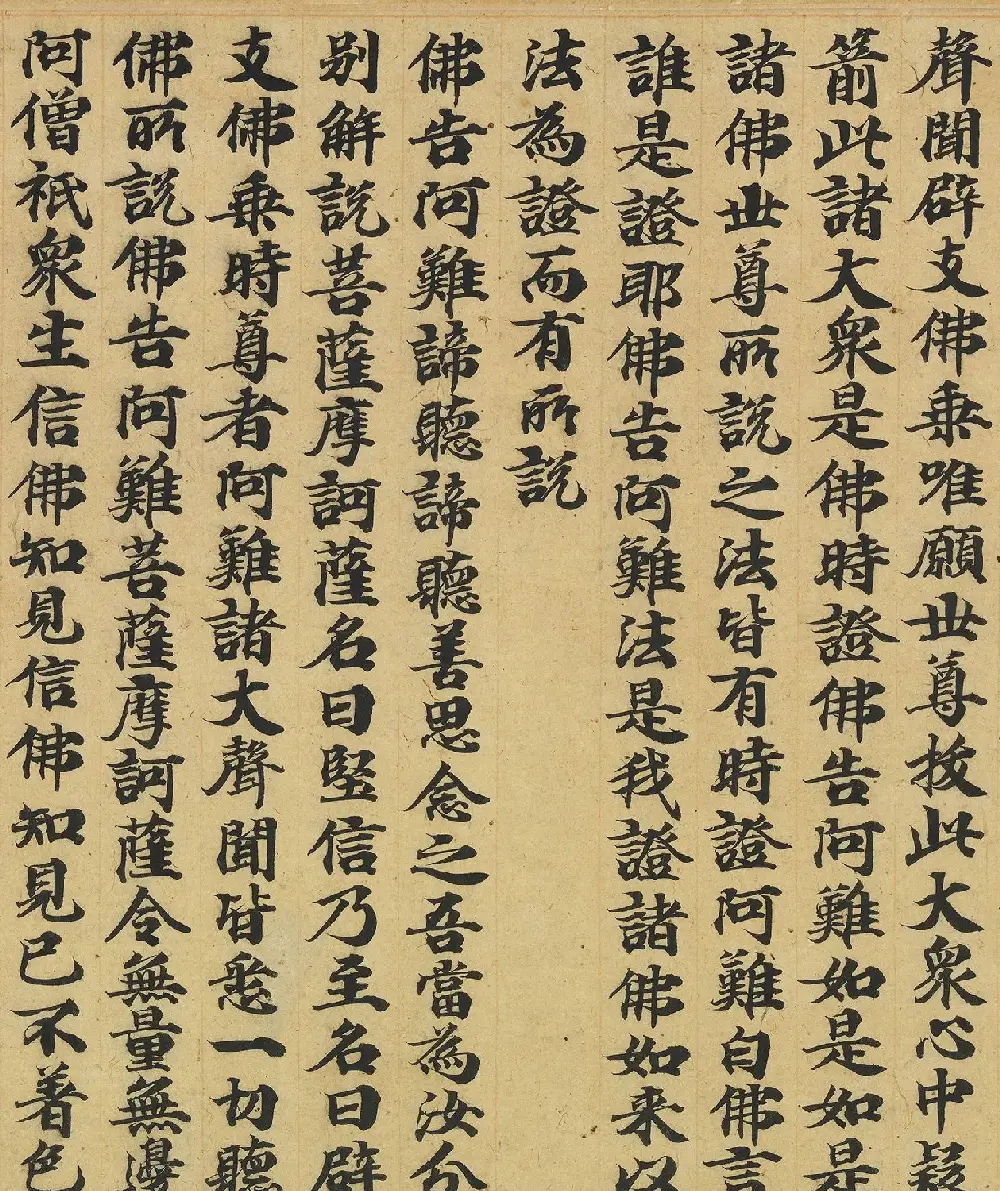 聲聞辟支佛乗唯願世尊拔此大衆心中疑
箭此諸大衆是佛時證佛告阿難如是如是
諸佛世尊所說之法皆有時證阿難白佛言
誰是證耶佛告阿難法是我證諸佛如来以
法為證而有所說
佛告阿難諦聽諦聽善思念之吾當為汝分
别解說菩薩摩訶薩名曰堅信乃至名曰辟
支佛乗時尊者阿難諸大聲聞皆悉一切聽
佛所說佛告阿難菩薩摩訶薩令無量無邊
阿僧祇衆生信佛知見信佛知見已不著色